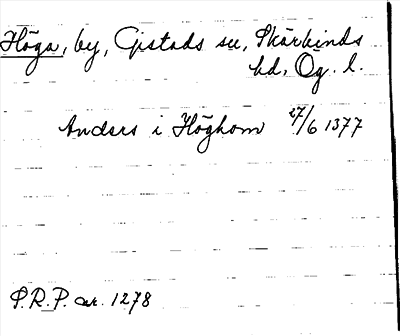 Höga, by, Gistads sn, Skärkinds
hd, Ög. l.
Anders i Höghom 27/6 1377
P.R.P. nr. 1278